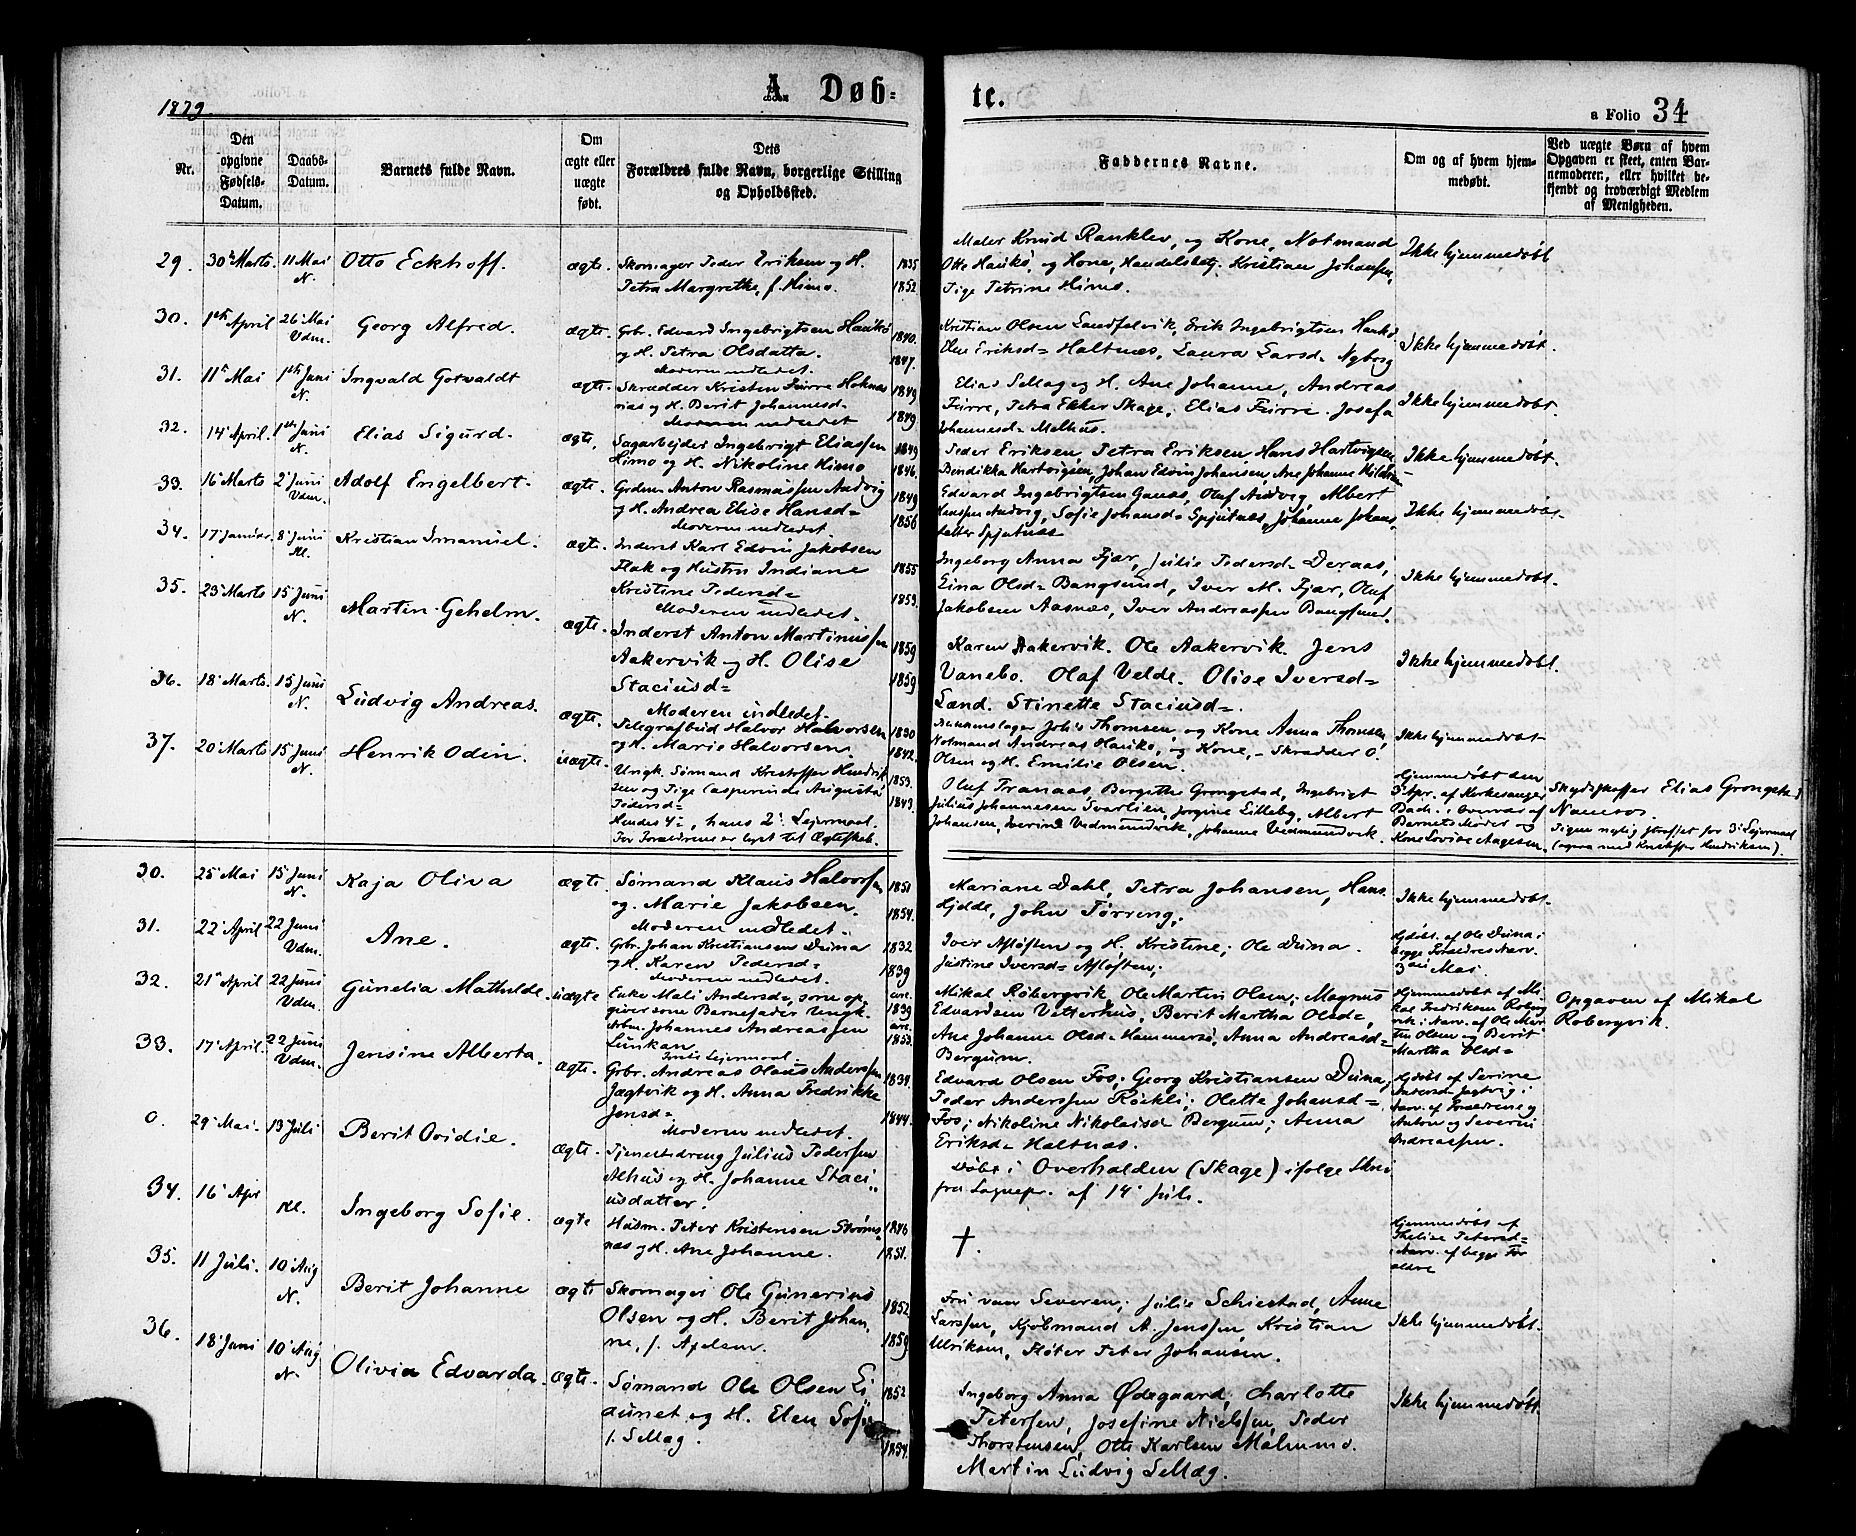 1879.
A. Døb-
te.
a Folio 34
Nr.
Den opgivne Fødsels-Datum.
Daabs-Datum.
Barnets fulde Navn.
Om ægte eller uægte født.
Dets Forældres fulde Navn, borgerlige Stilling og Opholdssted.
Faddernes Navne.
Om og af hvem hjemmedøbt.
Ved uægte Børn af hvem Opgaven er skeet, enten Barnemoderen, eller hvilket bekjendt og troværdigt Medlem af Menigheden.
29. 30te Marts 11 Mai N. Otto Eckhoff. ægte. Skomager Peder Eriksen og H. 1835
Petra Margrethe, f. Himo. 1852.
Maler Knud Ranklev, og Kone, Notmand
Otto Haukø, og Kone, Handelsbetj. Kristian Johansen,
Pige Petrine Himo.
Ikke hjemmedøbt
30. 1ste April 26 Mai Vdm. Georg Alfred. ægte. Gbr. Edvard Ingebrigtsen Haukø 1840.
og H. Petra Olsdatter. 1847.
Moderen indledet.
Kristian Olsen Sandfelvik, Erik Ingebrigtsen Haukø
Eline Eriksd= Haltnæs, Laura Larsd= Nyborg
Ikke hjemmedøbt.
31. 11te Mai 1ste Juni N. Ingvald Gotvaldt ægte. Skrædder Kristen Fürre 1849
og H. Berit Johannesd= 1849
Moderen indledet
Elias Sellæg og H. Ane Johanne, Andreas
Fürre, Petra Ekker Skage, Elias Fürre. Josefa
Johannesd= Melhus.
Ikke hjemmedøbt.
32. 14 April. 1ste Juni N. Elias Sigurd. ægte. Sagarbejder Ingebrigt Eliassen 1849
Himo og H. Nikoline Himo 1846.
Peder Eriksen, Petra Eriksen Hans Hartvigsen
Bendikka Hartvigsen, Johan Edvin Johansen, Ane Johanne
Ikke hjemmedøbt.
33. 16 Marts 2 Juni Vdm. Adolf Engelbert. ægte. Grdm. Anton Rasmussen Audvig 1849
og H. Andrea Elise Hansd= 1856
Moderen indledet.
Edvard Ingebrigtsen Ganæs, Oluf Audvig, Albert
Hansen Audvig, Sofie Johansd= Spjutnæs, Johanne Johans
datter Spjutnæs
Ikke hjemmedøbt.
34. 17 Januar. 8 Juni Kl. Kristian Imanuel. ægte. Inderst Karl Edvin Jakobsen
Flak og Hustru Indiane 1855
Kristine Pedersd= 1853.
Moderen indledet.
Ingeborg Anna Fjær, Julie Pedersd= Deraas,
Eina Olsd= Bangsund, Iver M. Fjær, Oluf
Jakobsen Aasnæs, Iver Andreassen Bangsund.
Ikke hjemmedøbt.
35. 23 Marts 15 Juni N. Martin Gehelm. ægte. Inderst Anton Martinussen
Aakervik og H. Olise 1859
Staciusd= 1859
Moderen indledet.
Karen Aakervik. Ole Aakervik. Jens
Vanebo. Olaf Velde. Olise Iversd=
Sand. Stinette Staciusd=.
Ikke hjemmedøbt.
36. 18 Marts. 15 Juni N. Ludvig Andreas. ægte. Telegrafbud Halvor Halvorsen 1830
og H. Marie Halvorsen. 1842.
Johs Thomsen, og Kone Anna Thomsen,
Notmand Andreas Haukø, og Kone, - Skrædder O.
Olsen og H. Emilie Olsen.
Ikke hjemmedøbt
37. 20 Marts 15 Juni N. Henrik Odin. uægte. Ungk. Sømand Kristoffer Hendrik
sen og Pige Casperinde Augusta 1853.
Pedersd= 1843.
Hendes 4de, hans 2det Lejermaal.
For Forældrene er lyst til Ægteskab.
Oluf Tranaas, Bergithe Grongstad, Ingebrigt
Julius Johannesen Svarlien, Jorgine Lilleby, Albert
Johansen, Iverine Vedmundvik, Johanne Vedmundvik.
Hjemmedøbt den
3 Apr. af Kirkesanger
Bach i Overvær af
Barnets Moder og
Kone Lovise Aagesen.
Skydsskaffer Elias Grongstad
Namsos.
Pigen nylig straffet for 3die Lejermaal
(ogsaa med Kristoffer Hendriksen).
30. 25 Mai 15 Juni N. Kaja Oliva ægte. Sømand Klaus Halvorsen 1851
og Marie Jakobsen. 1854.
Moderen indledet.
Mariane Dahl, Petra Johansen, Hans
Hjelde, John Tørring,
Ikke hjemmedøbt.
31. 22 April 22 Juni Vdm. Ane. ægte. Gbr. Johan Kristiansen Duna 1832
og H. Karen Pedersd= 1839
Moderen indledet.
Iver Afløften og H. Kristine; Ole Duna.
Justine Iversd= Afløften;
Hjdøbt. af Ole Duna i
begge Forældres Nærv.
Mai.
32. 21 April 22 Juni Vdm. Gunelia Mathilde. uægte Enke Mali Andersd=, som op
giver som Barnefader Ungk. 1839
Arbm. Johannes Andreassen
1853.
Første Lejermaal.
Mikal Røbergvik, Ole Martin Olsen; Magnus
Edvardsen Vetterhus, Berit Martha Olsd=,
Ane Johanne Olsd= Hammersø, Anna Andreasd=
Bergum.
Hjemmedøbt af Mi
kal Fredriksen Roberg
vik i Nærv. af Ole Mar
tin Olsen og Berit
Martha Olsd=
Opgaven af Mikal
Robergvik.
33. 17 April. 22 Juni Vdm. Jensine Alberta. ægte. Gbr. Andreas Olaus Anderssen 1834.
Jægtvik og H. Anna Fredrikke
Jensd= 1844.
Moderen indledet.
Edvard Olsen Fos; Georg Kristiansen Duna,
Peder Anderssen Røekli; Olette Johansd=
Fos; Nikoline Nikolaisd= Bergum; Anna
Eriksd= Haltnæs.
Hjdøbt. af Serine
Andersd= Jægtvig i
Nærv. af Forældrene og
Anton og Severin
Andreassen.
0. 29 Mai. 13 Juli Berit Ovidie. ægte. Tjenestedreng Julius Pedersen
Alhus og H. Johanne Staci
usdatter.
Døbt i Overhalden (Skage) ifølge Skriv
fra Sognepr. af 14 Juli.
34. 16 Apr Kl. Ingeborg Sofie. ægte Husm. Peter Kristensen Strøms 1846
næs og H. Ane Johanne. 1851.
†.
Hjemmedøbt af
Thelise Petersd=
i Nærv. af begge For
ældre
35. 11 Juli. 10 Aug N. Berit Johanne ægte Skomager Ole Gunerius
Olsen og H. Berit Johan 1852
ne, f. Axelsen. 1859
Fru van Severen; Julie Schiestad, Anne
Larssen, Kjøbmand A. Jenssen, Kristian
Ulriksen, Fløter Peter Johansen.
Ikke hjemmedøbt.
36. 18 Juni 10 Aug N. Olivia Edvarda. ægte. Sømand Ole Olsen Li 1852
aunet og H. Elen Sofie
f. Sellæg. 1854.
Ingeborg Anna Ødegaard; Charlotte
Petersen, Josefine Nielsen, Peder
Thorstensen, Otto Karlsen Malumo.
Martin Ludvig Sellæg.
Ikke hjemmedøbt.